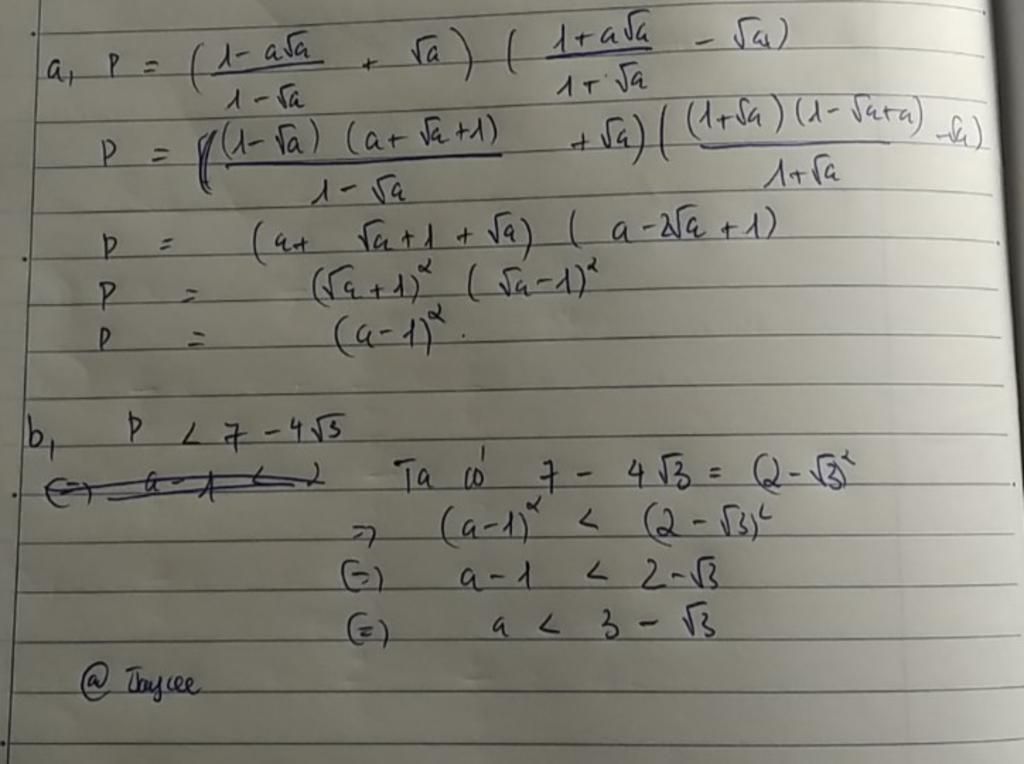 a, P = (\frac{1-a\sqrt{a}}{1-\sqrt{a}} + \sqrt{a}) (\frac{1+a\sqrt{a}}{1+\sqrt{a}} - \sqrt{a})
P = (\frac{(1-\sqrt{a}) (a+\sqrt{a}+1)}{1-\sqrt{a}} + \sqrt{a}) (\frac{(1+\sqrt{a})(1-\sqrt{a}+a)}{1+\sqrt{a}} - \sqrt{a})
P = (a+ \sqrt{a}+1+\sqrt{a}) (a-2\sqrt{a}+1)
P = (\sqrt{a}+1)^2 (\sqrt{a}-1)^2
P = (a-1)^2.
b, P < 7-4\sqrt{3}
Ta có 7 - 4\sqrt{3} = (2-\sqrt{3})^2
=> (a-1)^2 < (2-\sqrt{3})^2
(=) a-1 < 2-\sqrt{3}
(=) a < 3 - \sqrt{3}
@ Jaycee